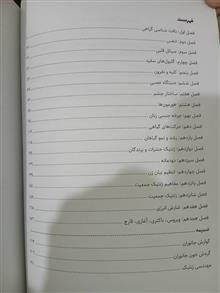 فهرست
فصل اول: بافت شناسی گیاهی
فصل دوم: تنفس
فصل سوم: سیکل قلبی
فصل چهارم: گلبول‌های سفید
فصل پنجم: کلیه و نفرون
فصل ششم: دستگاه عصبی
فصل هفتم: ساختار چشم
فصل هشتم: هورمون‌ها
فصل نهم: چرخه جنسی زنان
فصل دهم: حرکت‌های گیاهی
فصل یازدهم: رشد و نمو گیاهان
فصل دوازدهم: ژنتیک حشرات و پرندگان
فصل سیزدهم: دودمانه
فصل چهاردهم: تنظیم بیان ژن
فصل پانزدهم: مفاهیم ژنتیک جمعیت
فصل شانزدهم: ژنتیک جمعیت
فصل هفدهم: شارش انرژی
فصل هجدهم: ویروس، باکتری، آغازی، قارچ
ضمیمه
گوارش جانوران
گردش خون جانوران
مهندسی ژنتیک